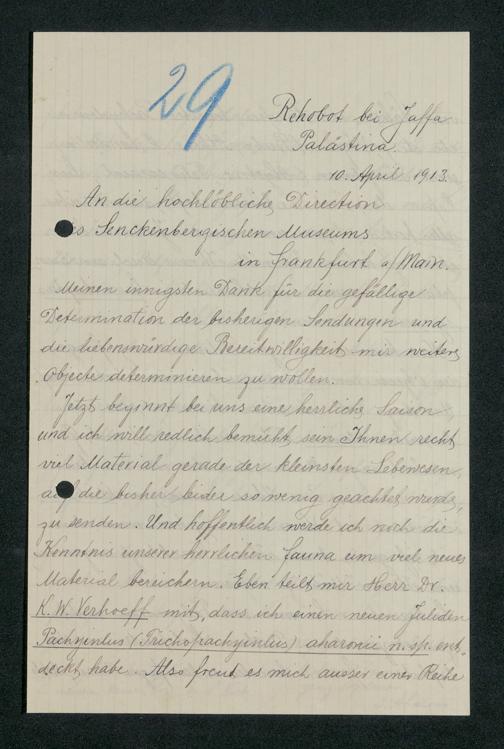 29
Rehobot bei Jaffa
Palästina.
10. April 1913.
An die hochlöbliche Direction
des Senckenbergischen Museums
in Frankfurt a/Main.
Meinen innigsten Dank für die gefällige
Determination der bisherigen Sendungen und
die liebenswürdige Bereitwilligkeit mir weitere
Objecte determinieren zu wollen.
Jetzt beginnt bei uns eine herrliche Saison
und ich will redlich bemüht sein Ihnen recht
viel Material gerade der kleinsten Lebewesen,
auf die bisher leider so wenig geachtet wurde,
zu senden. Und hoffentlich werde ich noch die
Kenntnis unserer herrlichen Fauna um viel neues
Material bereichern. Eben teilt mir Herr Dr.
K. W. Verhoeff mit, dass ich einen neuen Juliden
Pachyiulus (Trichopachyiulus) aharonii n. sp. ent-
deckt habe. Also freut es mich ausser einer Reihe